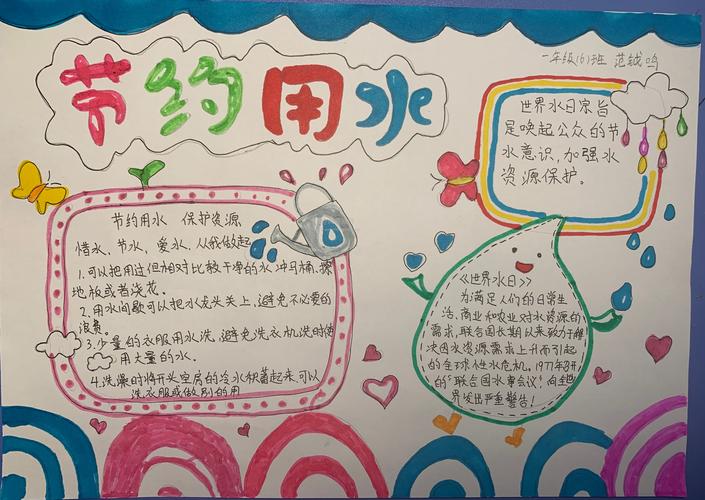 节约用水
一年级(6)班 范钺鸣
世界水日宗旨
是唤起公众的节
水意识,加强水
资源保护。
节约用水 保护资源
惜水、节水、爱水、从我做起
1.可以把用过但相对比较干净的水冲马桶、擦
地板或者浇花。
2.用水间歇可以把水龙头关上,避免不必要的
浪费。
3.少量的衣服用水洗,避免洗衣机洗时使
用大量的水。
4.洗澡时将开头空局的冷水积蓄起来,可以
洗衣服或做别的用
《世界水日》
为满足人们的日常生
活、商业和农业对水资源的
需求,联合国长期以来致力于解
决因水资源需求上升而引起
的全球性水危机。1977年召开
的"联合国水事会议",向全
世界发出严重警告!